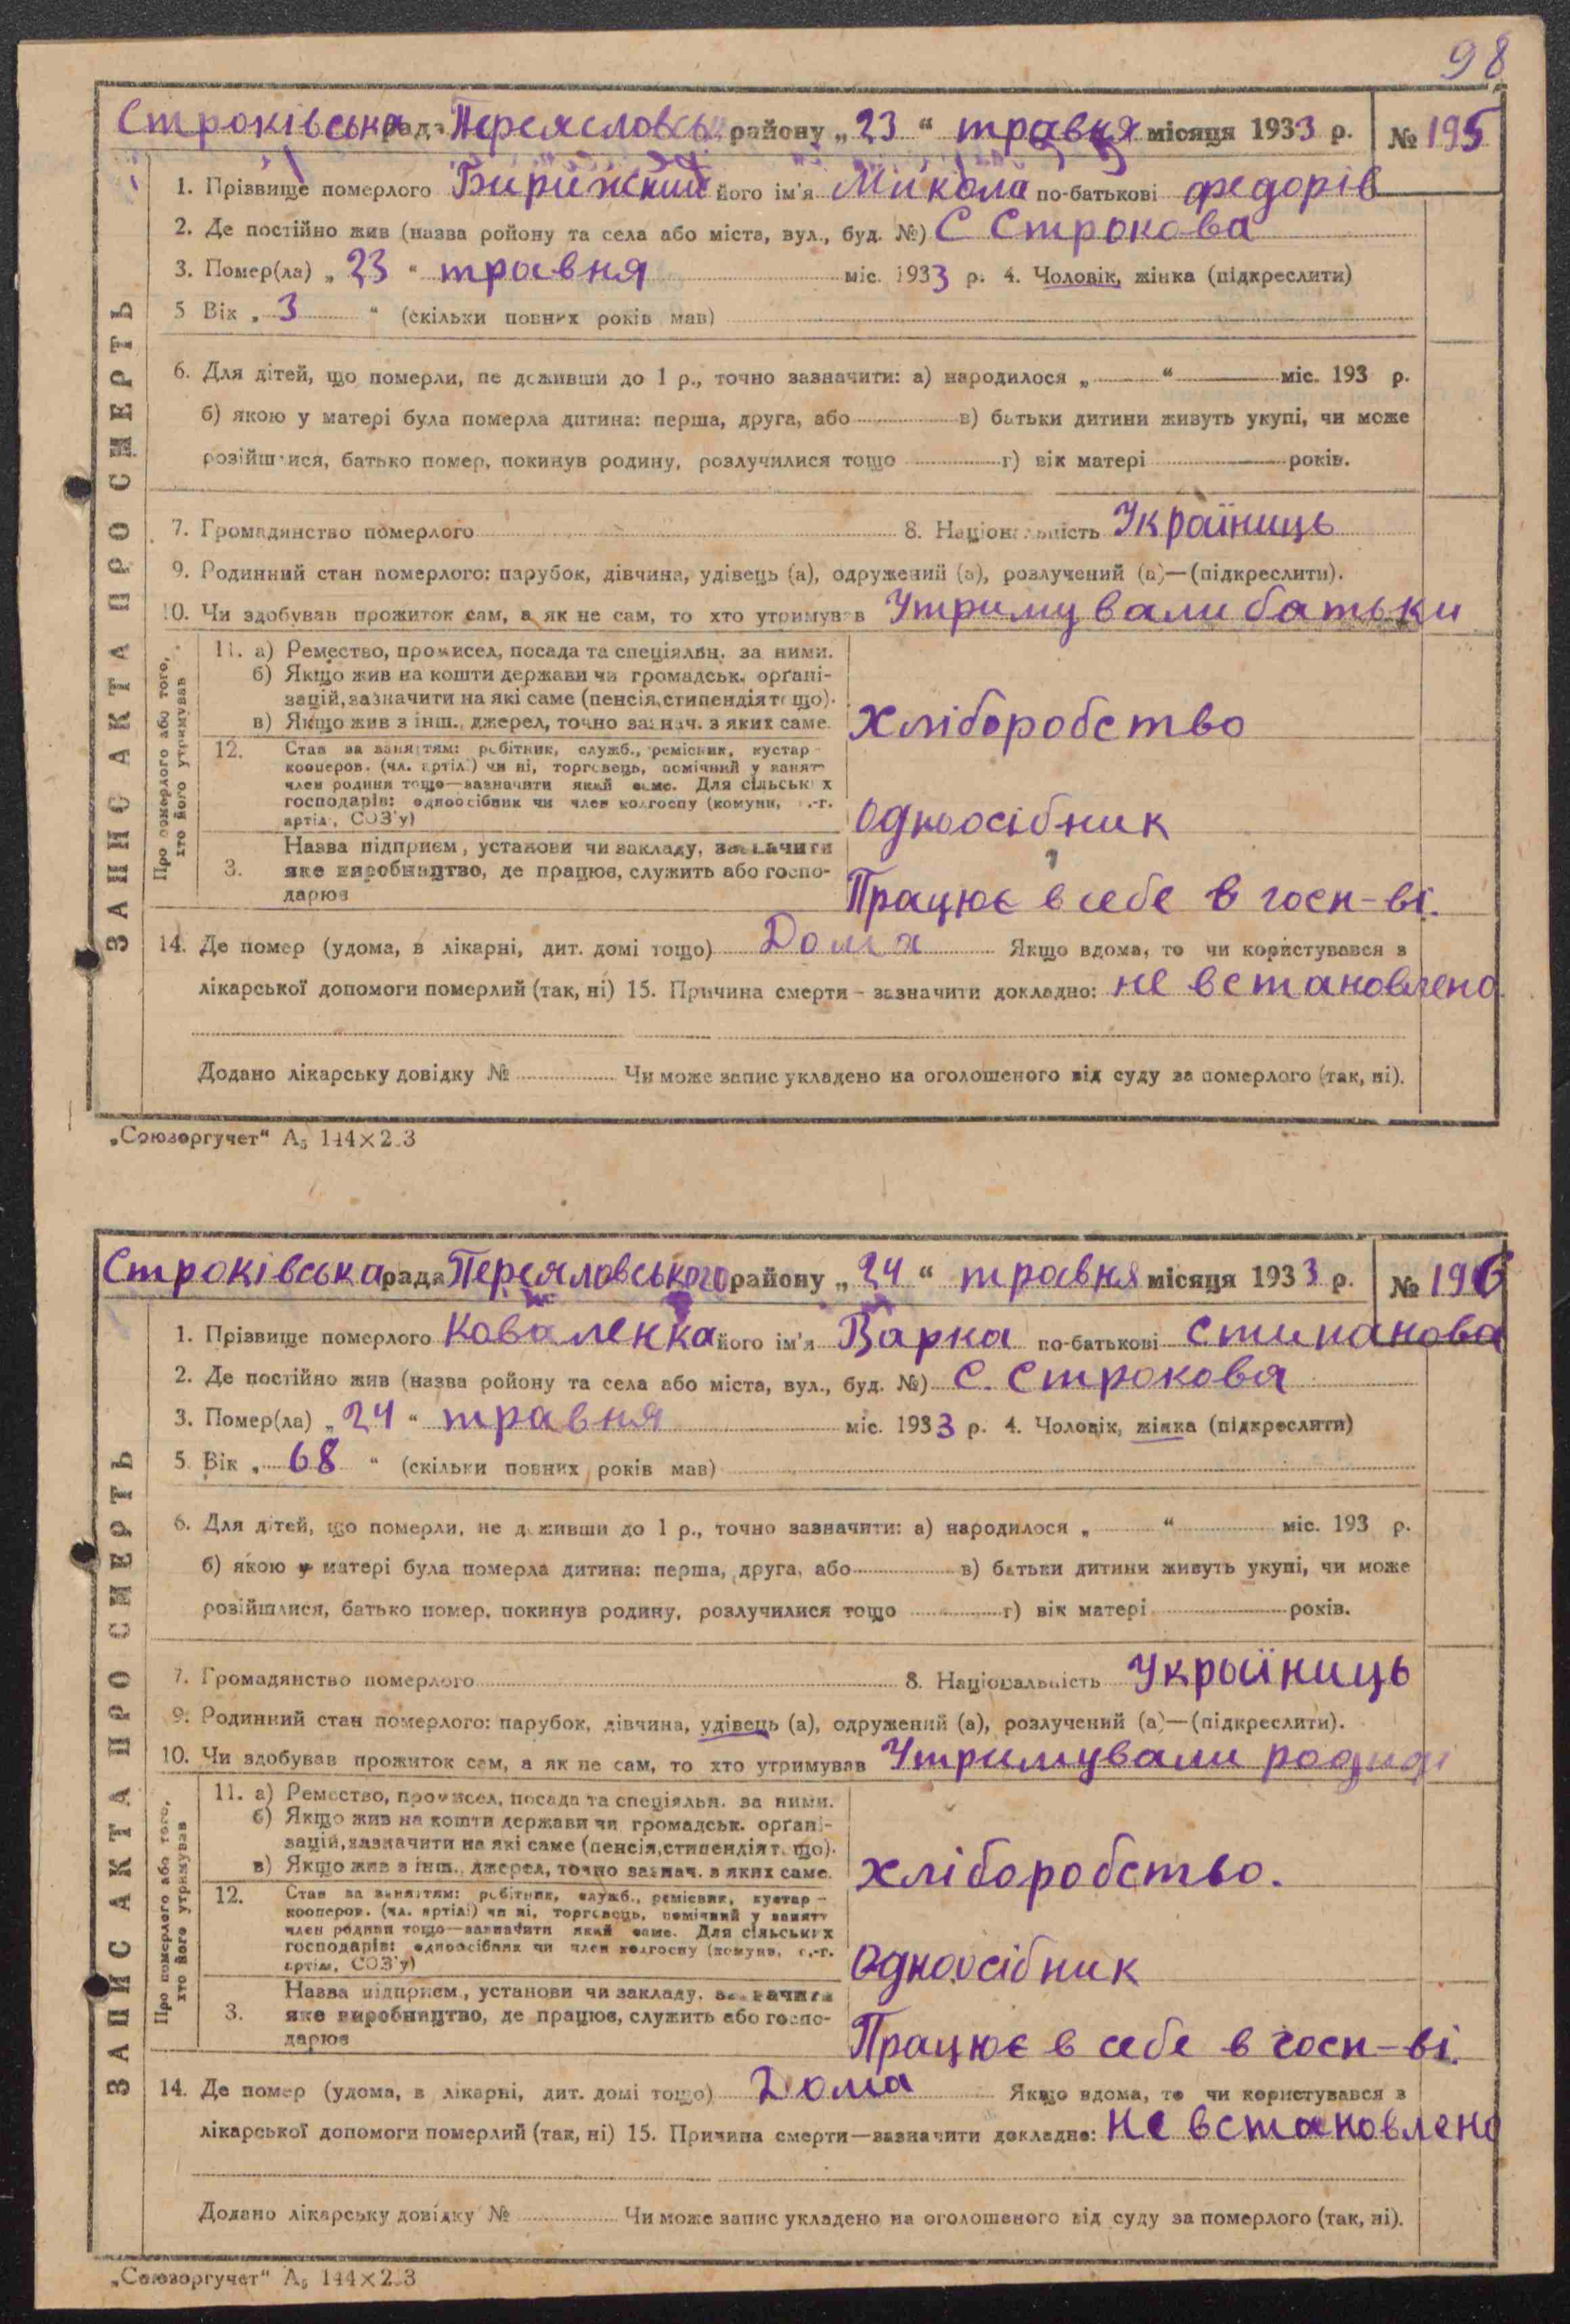 98
Строківська рада Переясловськ району „23“ травня місяця 1933 р. № 195
ЗАПИС АКТА ПРО СМЕРТЬ
1. Прізвище померлого Бирижний його ім'я Микола по-батькові федорів
2. Де постійно жив (назва ройону та села або міста, вул., буд. №) С Строкова
3. Помер(ла) „23“ травня міс. 1933 р. 4. Чоловік, жінка (підкреслити)
5 Вік „3“ (скільки повних років мав)
6. Для дітей, що померли, не доживши до 1 р., точно зазначити: а) народилося „ “ міс. 193 р.
б) якою у матері була померла дитина: перша, друга, або в) батьки дитини живуть укупі, чи може
розійшлися, батько помер, покинув родину, розлучилися тощо г) вік матері років.
7. Громадянство померлого 8. Національність Україниць
9. Родинний стан померлого: парубок, дівчина, удівець (а), одружений (а), розлучений (а)—(підкреслити).
10. Чи здобував прожиток сам, а як не сам, то хто утримував Утримували батьки
Про померлого або того, хто його утримував
11. а) Ремество, промисел, посада та спеціяльн. за ними.
б) Якщо жив на кошти держави чи громадськ. орґані-
зацій, зазначити на які саме (пенсія, стипендія тощо).
в) Якщо жив з інш., джерел, точно зазнач. з яких саме. Хліборобство
12. Стан за заняттям: робітник, служб., ремісник, кустар -
кооперов. (чл. артілі) чи ні, торговець, помічний у занятт
член родини тощо—зазначити який саме. Для сільських
господарів: одноосібник чи член колгоспу (комуни, с.-г.
артілі, СОЗ'у) Одноосібник
3. Назва підприєм., установи чи закладу, зазначити
яке виробництво, де працює, служить або госпо-
дарює Працює в себе в госп-ві.
14. Де помер (удома, в лікарні, дит. домі тощо) Дома Якщо вдома, то чи користувався з
лікарської допомоги померлий (так, ні) 15. Причина смерти - зазначити докладно: не встановлено
Додано лікарську довідку № Чи може запис укладено на оголошеного від суду за померлого (так, ні).
„Союзоргучет“ А5 144×2 3
Строківська рада Переяловського району „24“ травня місяця 1933 р. № 196
ЗАПИС АКТА ПРО СМЕРТЬ
1. Прізвище померлого Коваленка його ім'я Варка по-батькові стипанова
2. Де постійно жив (назва ройону та села або міста, вул., буд. №) С. Строкова
3. Помер(ла) „24“ травня міс. 1933 р. 4. Чоловік, жінка (підкреслити)
5. Вік „68“ (скільки повних років мав)
6. Для дітей, що померли, не доживши до 1 р., точно зазначити: а) народилося „ “ міс. 193 р.
б) якою у матері була померла дитина: перша, друга, або в) батьки дитини живуть укупі, чи може
розійшлися, батько помер, покинув родину, розлучилися тощо г) вік матері років.
7. Громадянство померлого 8. Національність Украйниць
9. Родинний стан померлого: парубок, дівчина, удівець (а), одружений (а), розлучений (а)—(підкреслити).
10. Чи здобував прожиток сам, а як не сам, то хто утримував Утримували
Про померлого або того, хто його утримував
11. а) Ремество, промисел, посада та спеціяльн. за ними.
б) Якщо жив на кошти держави чи громадськ. орґані-
зацій, зазначити на які саме (пенсія, стипендія т. що).
в) Якщо жив з інш., джерел, точно зазнач. з яких саме. Хліборобство.
12. Стан за заняттям: робітник, служб., ремісник, кустар -
кооперов. (чл. артілі) чи ні, торговець, помічний у занятт
член родини тощо—зазначити який саме. Для сільських
господарів: одноосібник чи член колгоспу (комуни, с.-г.
артілі, СОЗ'у) Одноосібник
3. Назва підприєм., установи чи закладу, зазначити
яке виробництво, де працює, служить або госпо-
дарює Працює в себе в госп-ві.
14. Де помер (удома, в лікарні, дит. домі тощо) Дома Якщо вдома, то чи користувався з
лікарської допомоги померлий (так, ні) 15. Причина смерти—зазначити докладно: Не встановлено
Додано лікарську довідку № Чи може запис укладено на оголошеного від суду за померлого (так, ні).
„Союзоргучет“ А5 144×2.3